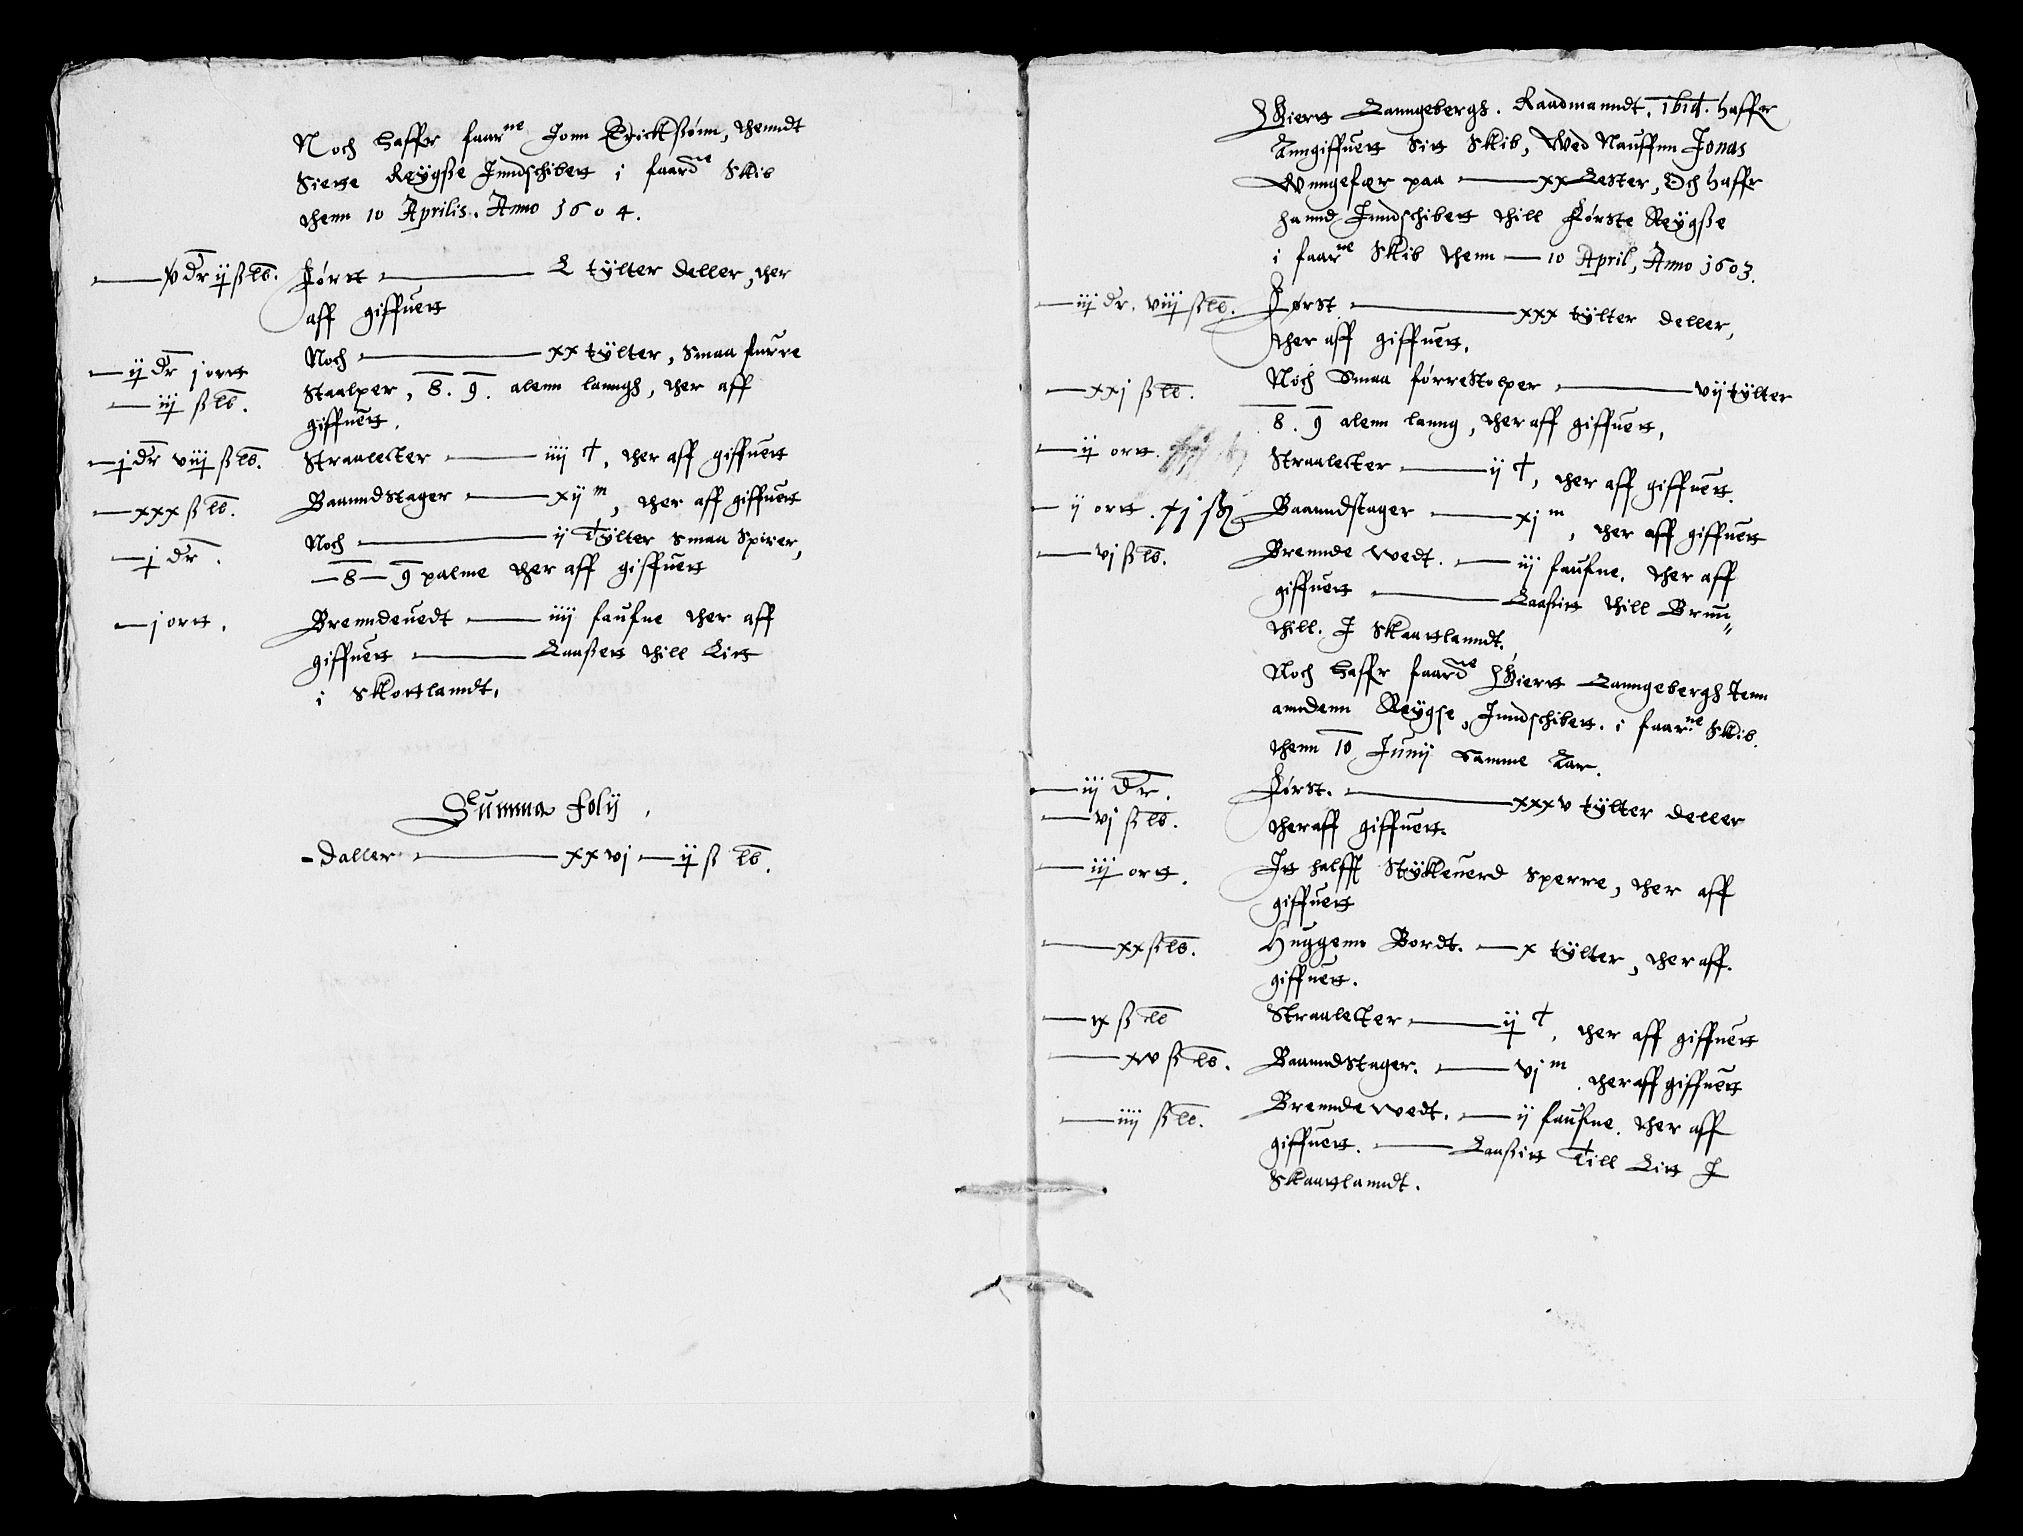 Noch haffr faarne Jonn Erickßønn, thenndt
Siette Reÿgße Inndschibett i faardne Skib
thenn 10 Aprilis. Anno 1604.
v dr ij ß lb. Først L tÿlter deller, ther
aff giffuett
Noch xx tÿlter, smaa furre
ij dr j ortt
Staalper, 8. 9. alenn lanngh, ther aff
iij ß lb.
giffuett.
j dr viij ß lb. Straalecter iiij t, ther aff giffuett
xxx ß lb. Baanndstager xij m, ther aff giffuett
j dr. Noch ij Tÿlter smaa Spirer,
8 9 palme ther aff giffuett
j ortt. Brenndeuedt iiij faufne ther aff
giffuett Laaßett thill Litt
i Skottlanndt.
Summa folij.
Daller xxvj ij ß lb.
Gierts Lanngebergh. Raadmanndt, ibid. haffr
Anngiffuett Sitt Skib, Wed Nauffnn Jonas
Wnngefær paa xx Lester, Och haffr
hannd Inndschibett thill Første Reÿgße
i faarne Skib thenn 10 April, Anno 1603.
iij dr. viij ß lb. Først xxx tÿlter deller,
ther aff giffuett.
xxj ß lb. Noch Smaa førrestolper vij tÿlter
8. 9 alenn lanng, ther aff giffuett,
ij ortt. Straalecter ij t, ther aff giffuett.
ij ortt. xj ß Baanndstager xj m, ther aff giffuett
vj ß lb. Brennde wedt. iij faufne. ther aff
giffuett Laaßitt thill Brun
thill. I Skaattlanndt.
Noch haffr faardne Giertt Lanngebergh Tenn
anndenn Reÿgse, Inndschibett. i faarne Skib.
thenn 10 Junij Samme Aar.
iij dr. Først. xxxv tÿlter deller
vj ß lb. ther aff giffuett.
iij ortt. Itt halfft Stÿkeuerd Sperre, ther aff
giffuett
xx ß lb. Huggenn Bordt. x tÿlter, ther aff.
giffuett.
ix ß lb Straalecter ij t, ther aff giffuett
xv ß lb. Baanndstager. vj m ther aff giffuett
iiij ß lb. Brenndewedt. ij faufne. ther aff
giffuett. Laaßitt Till Litt I
Skaattlanndt.